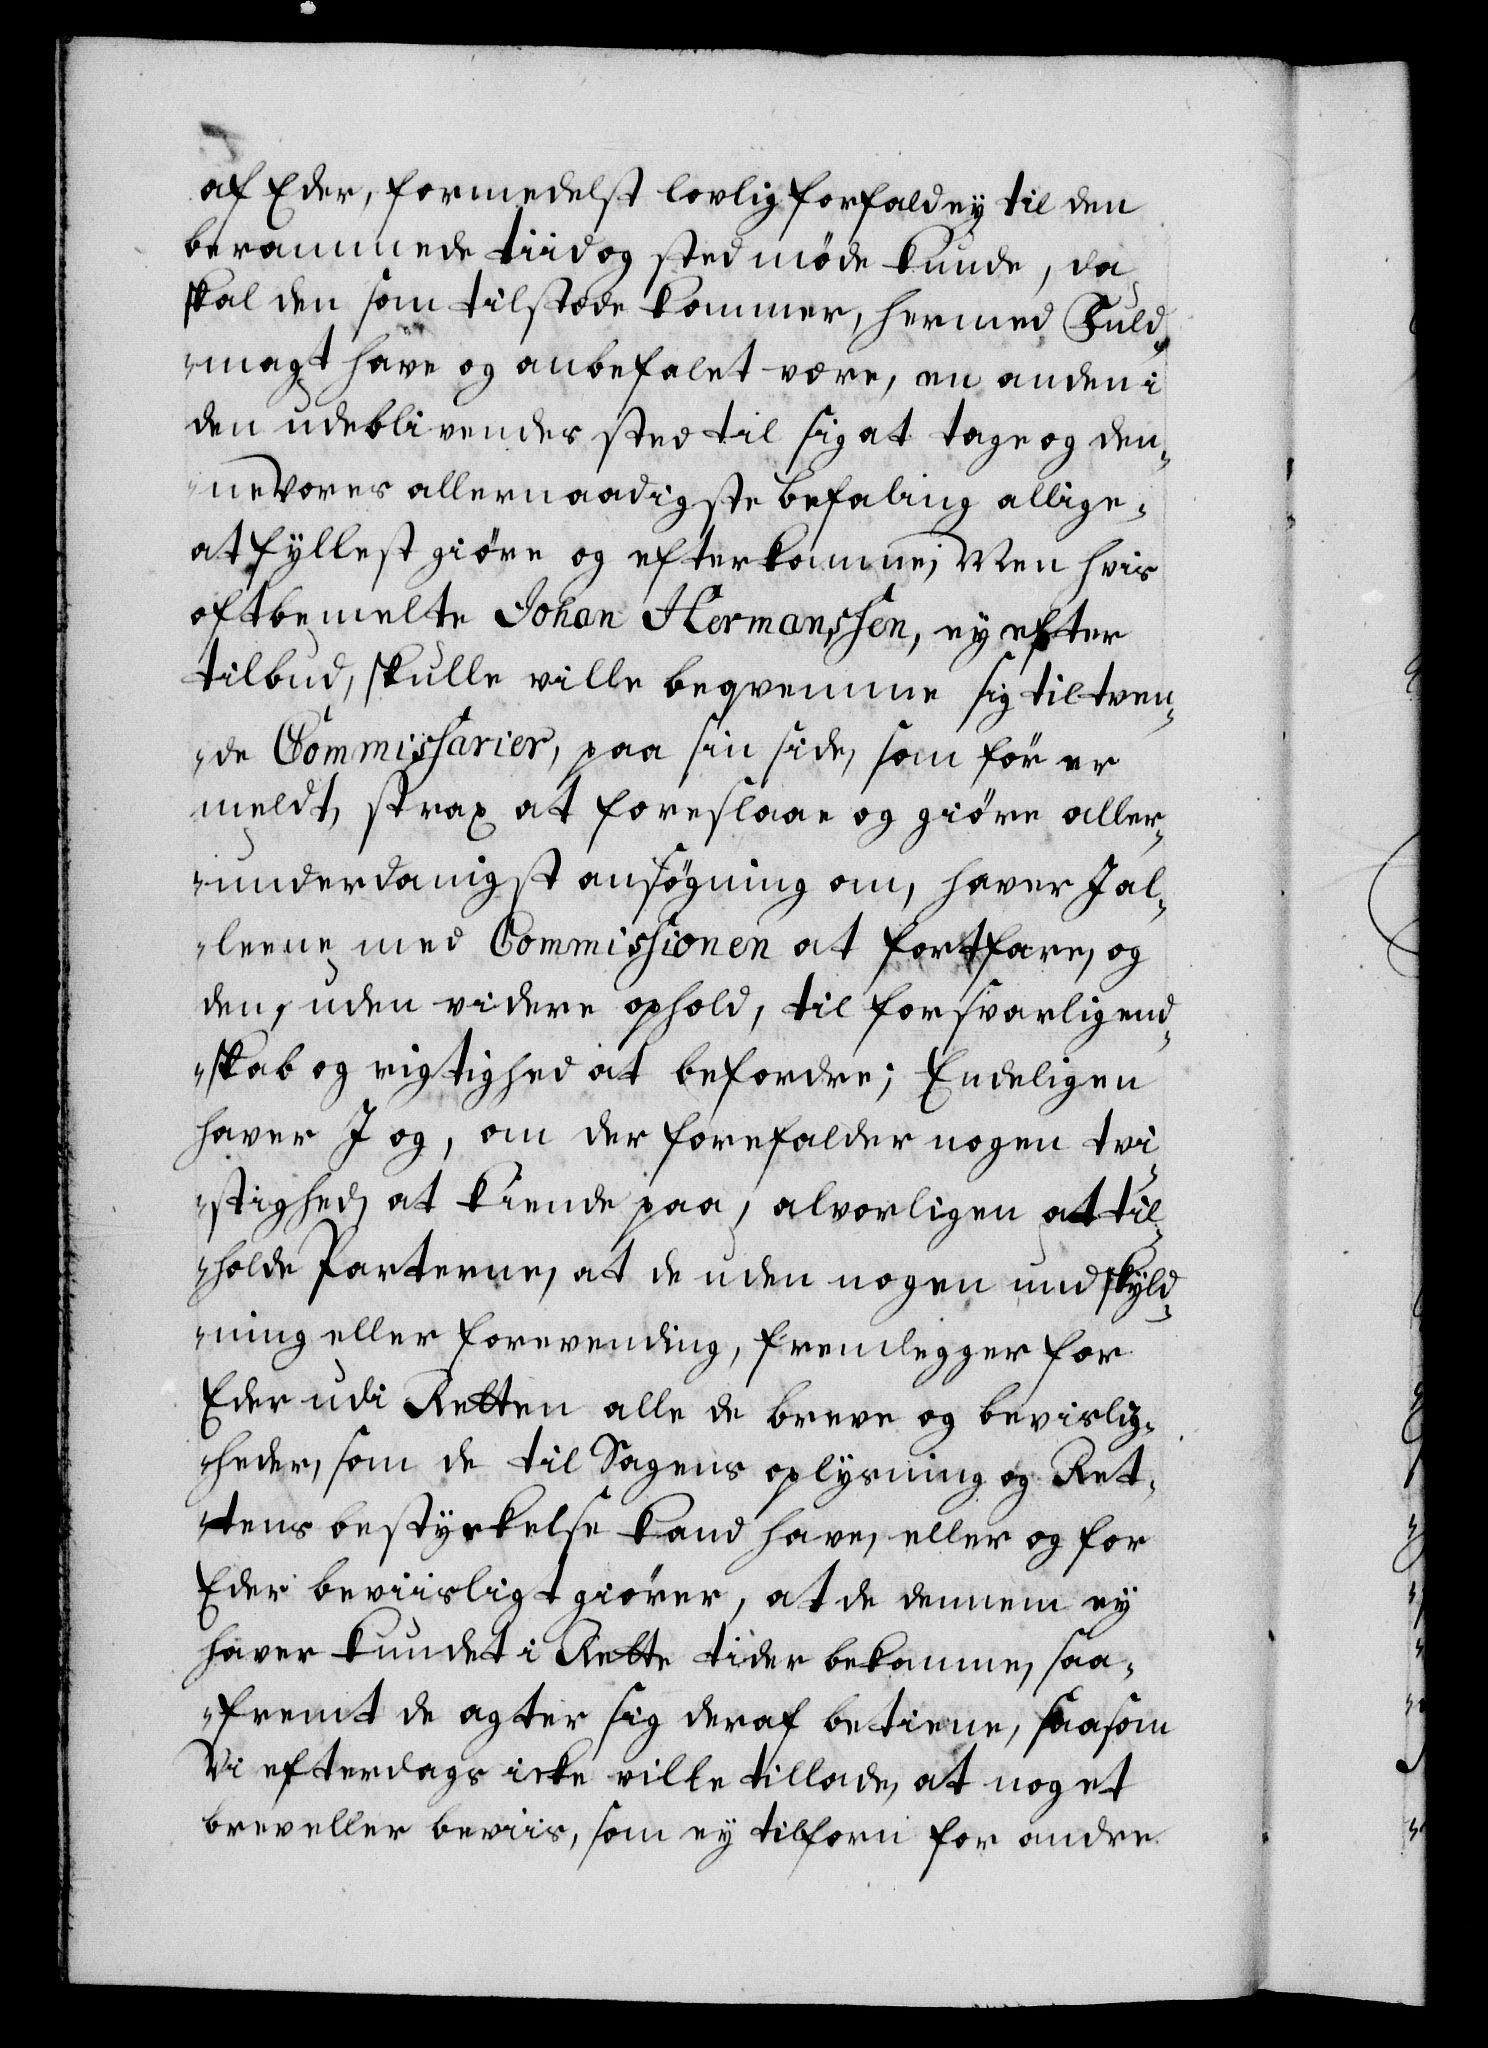 af Eder, formedelst lovlig forfald ey til den
berammede tiid og sted møde kunde, da
skal den som tilstæde kommer, hermed Fuld-
-magt have og anbefalet være, en anden i
den udeblivendes sted til sig at tage og den-
-ne Vores allernaadigste befaling allige-
at fyllest giøre og efterkomme; Men hvis
oftbemelte Johan Hermanssen, ey efter
tilbud, skulle ville beqvemme sig til tven-
-de Commissarier, paa sin side, som før er
meldt, strax at foreslaae og giøre aller-
-underdanigst ansøgning om, haver I al-
-leene med Commissionen at fortfare, og
den, uden videre ophold, til forsvarlig end-
-skab og rigtighed at befordre; Endeligen
haver I og, om der forefalder nogen tvi-
-stighed, at kiende paa, alvorligen at til-
-holde Parterne, at de uden nogen undskyld-
-ning eller forevending, fremlegger for
Eder udi Retten alle de breve og bevislig-
-heder, som de til Sagens oplysning og Ret-
-tens bestyrkelse kand have, eller og for
Eder beviisligt giører, at de dennem ey
haver kundet i Rette tider bekomme, saa-
-fremt de agter sig deraf betiene, saasom
Vi efterdags icke ville tillade, at noget
brev eller beviis, som ey tilforn for andre